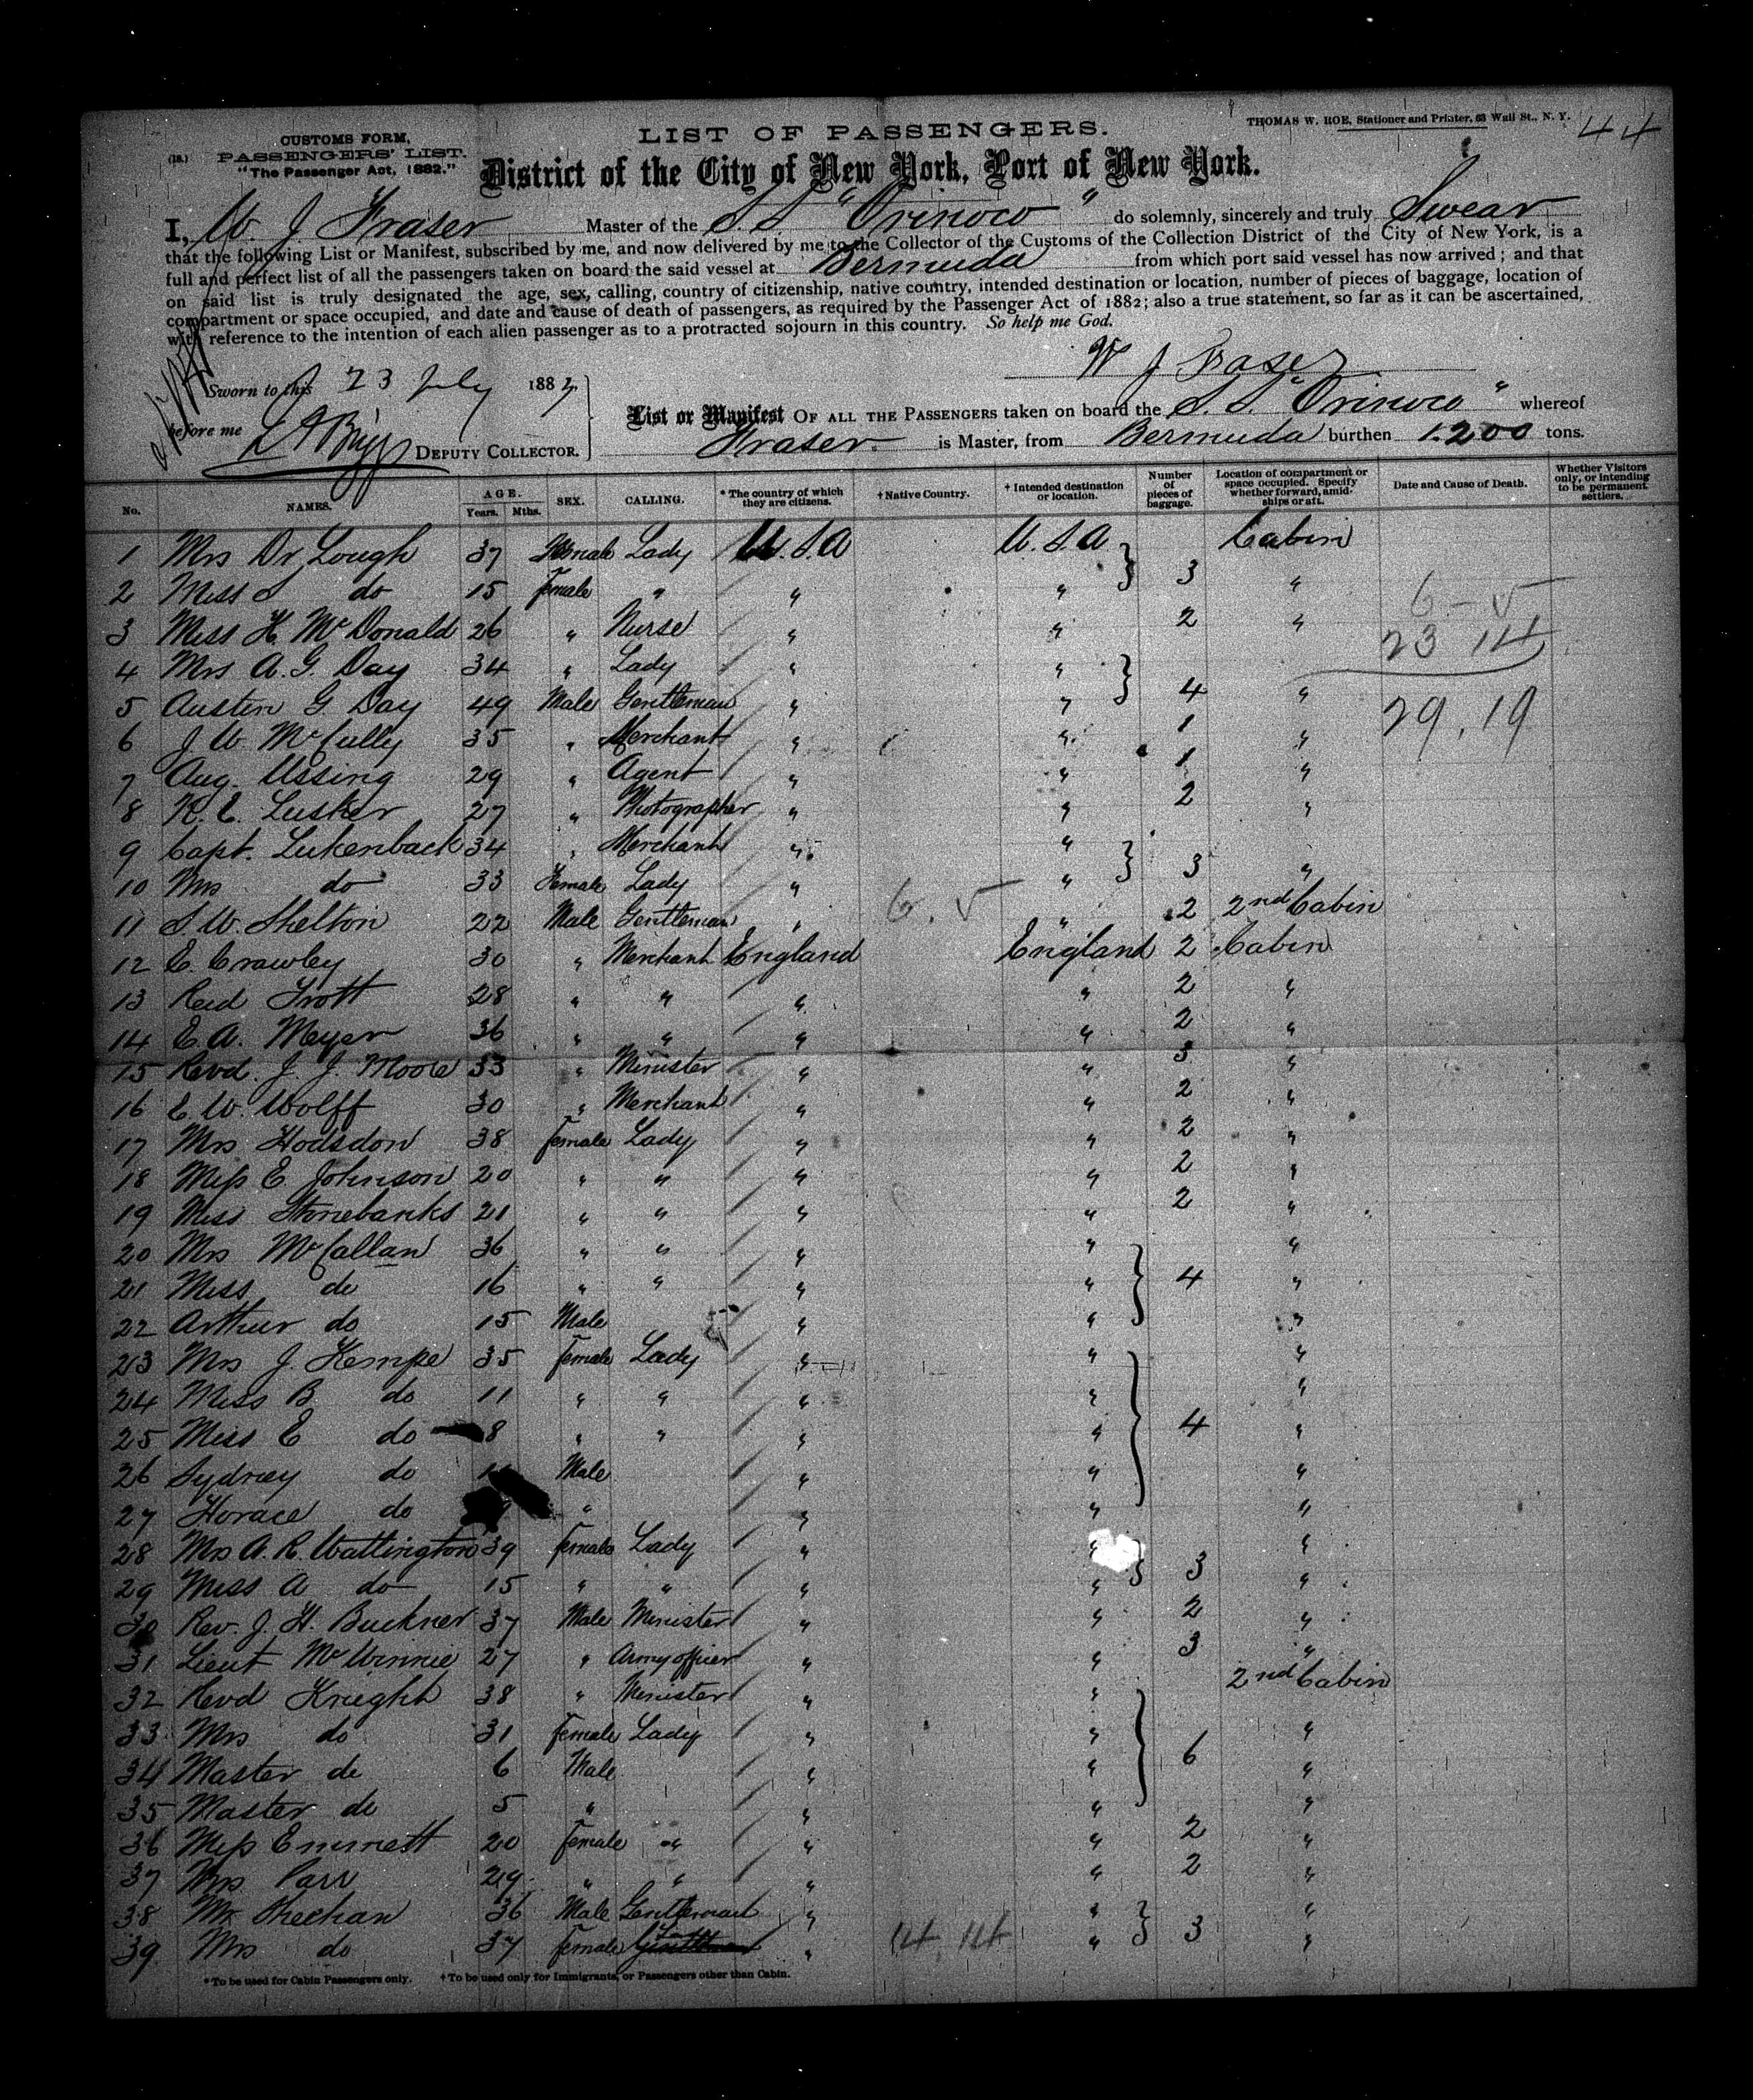 44
(18.) CUSTOMS FORM,
PASSENGERS' LIST.
"The Passenger Act, 1882."
LIST OF PASSENGERS.
THOMAS W. ROE, Stationer and Printer, 63 Wall St., N. Y.
District of the City of New York, Port of New York.
I, W. J. Fraser Master of the S.S. "Orinoco" do solemnly, sincerely and truly Swear
that the following List or Manifest, subscribed by me, and now delivered by me to the Collector of the Customs of the Collection District of the City of New York, is a
full and perfect list of all the passengers taken on board the said vessel at Bermuda from which port said vessel has now arrived; and that
on said list is truly designated the age, sex, calling, country of citizenship, native country, intended destination or location, number of pieces of baggage, location of
compartment or space occupied, and date and cause of death of passengers, as required by the Passenger Act of 1882; also a true statement, so far as it can be ascertained,
with reference to the intention of each alien passenger as to a protracted sojourn in this country. So help me God.
W J Fraser
Sworn to this 23 July 188
before me DEPUTY COLLECTOR.
List or Manifest OF ALL THE PASSENGERS taken on board the S.S. "Orinoco" whereof
Fraser is Master, from Bermuda burthen 1.200 tons.
No. NAMES. AGE. Years. Mths. SEX. CALLING. * The country of which they are citizens. † Native Country. † Intended destination or location. Number of pieces of baggage. Location of compartment or space occupied. Specify whether forward, amidships or aft. Date and Cause of Death. Whether Visitors only, or intending to be permanent settlers.
1 Mrs Dr Lough 37 Female Lady U.S.A U.S.A Cabin
2 Miss do 15 female " " " 3 "
3 Miss H McDonald 26 " Nurse " " 2 "
4 Mrs A. G. Day 34 " Lady " "
5 Austin G. Day 49 Male Gentleman " " 4 "
6 J W McCally 35 " Merchant " " 1 "
7 Aug. Ussing 29 " Agent " " 1 "
8 K. E. Lusker 27 " Photographer " " 2 "
9 Capt. Lukenback 34 " Merchant " "
10 Mrs do 33 Female Lady " " 3 "
11 S. W. Shelton 22 Male Gentleman " " 2 2nd Cabin
12 E. Crawley 30 " Merchant England England 2 Cabin
13 Reid Trott 28 " " " " 2 "
14 E. A. Meyer 36 " " " " 2 "
15 Revd. J. J. Moore 33 " Minister " " 3 "
16 E. W. Wolff 30 " Merchant " " 2 "
17 Mrs Hodsdon 38 female Lady " " 2 "
18 Miss E Johnson 20 " " " " 2 "
19 Miss Stonebanks 21 " " " " 2 "
20 Mrs McCallan 36 " " " " "
21 Miss do 16 " " " " 4 "
22 Arthur do 15 Male " " "
23 Mrs J. Kempe 35 female Lady " " "
24 Miss B do 11 " " " " "
25 Miss E do 8 " " " " 4 "
26 Sydney do Male " " "
27 Horace do " " " "
28 Mrs A. R. Wattington 39 female Lady " " "
29 Miss A do 15 " " " " 3 "
30 Rev. J. H. Buckner 37 Male Minister " " 2 "
31 Lieut McWinnie 27 " Army officer " " 3 "
32 Revd Knight 38 " Minister " " 2nd Cabin
33 Mrs do 31 female Lady " " "
34 Master do 6 Male " " 6 "
35 Master do 5 " " " "
36 Miss Emmett 20 female " " " 2 "
37 Mrs Parr 29 " " " " 2 "
38 Mr Sheehan 36 Male Gentleman " " "
39 Mrs do 37 female " " 3 "
23 14
29, 19
14, 14
* To be used for Cabin Passengers only. † To be used only for Immigrants, or Passengers other than Cabin.